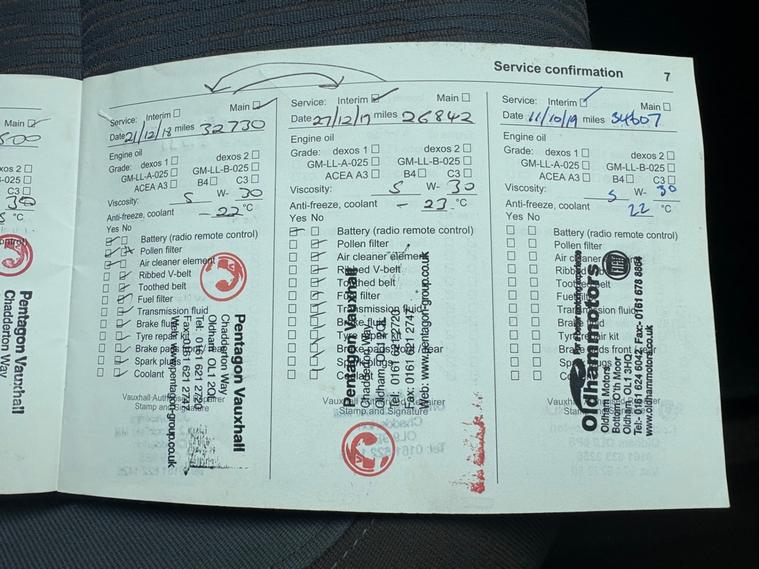 Service confirmation 7
Main
Service: Interim Main
Date 21/12/18 miles 32730
Engine oil
Grade: dexos 1 dexos 2
GM-LL-A-025 GM-LL-B-025
ACEA A3 B4 C3
Viscosity: 5 W- 30
Anti-freeze, coolant -22 °C
Yes No
Battery (radio remote control)
Pollen filter
Air cleaner element
Ribbed V-belt
Toothed belt
Fuel filter
Transmission fluid
Brake fluid
Tyre repair
Spark plugs
Coolant
Stamp and Signature
Pentagon Vauxhall
Chadderton Way
Oldham OL1 2QL
Tel: 0161 621 2720
Fax: 0161 621 2747
Web: www.pentagon-group.co.uk
Service: Interim Main
Date 27/12/17 miles 26842
Engine oil
Grade: dexos 1 dexos 2
GM-LL-A-025 GM-LL-B-025
ACEA A3 B4 C3
Viscosity: 5 W- 30
Anti-freeze, coolant - 23 °C
Yes No
Battery (radio remote control)
Pollen filter
Air cleaner element
Ribbed V-belt
Toothed belt
Fuel filter
Transmission fluid
Stamp and Signature
Pentagon Vauxhall
Chadderton Way
Oldham OL1 2QL
Tel: 0161 621 2720
Fax: 0161 621 2747
Web: www.pentagon-group.co.uk
Service: Interim Main
Date 11/10/19 miles 34607
Engine oil
Grade: dexos 1 dexos 2
GM-LL-A-025 GM-LL-B-025
ACEA A3 B4 C3
Viscosity: 5 W- 30
Anti-freeze, coolant 22 °C
Yes No
Battery (radio remote control)
Pollen filter
Air cleaner
Ribbed
Transmission fluid
Stamp and Signature
Oldhammotors
Oldham Motors,
Bottom O'th Moor
Oldham, OL1 3HQ
Tel:- 0161 624 6042 Fax:- 0161 678 8864
www.oldhammotors.co.uk
Pentagon Vauxhall
Chadderton Way